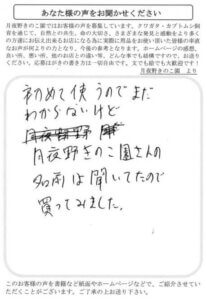 あなた様の声をお聞かせください
月夜野きのこ園ではお客様の声を募集しています。クワガタ・カブトムシ飼
育を通じて、自然との共生、命の大切さ、さまざまな発見と感動をより多く
の方達にお伝え出来るお店になる為に実際に用品をお使い頂いた皆様の率直
なお声が何よりの力となり、今後の参考となります。ホームページの感想、
良い所、悪い所、他のお店との違い等、どんな事でも結構ですので、お送り
くださいませ。応募はがきの書き方は一切自由です。文でも絵でも大歓迎です!
月夜野きのこ園 より
初めて使うのでまだ
わからないけど
月夜野きのこ園さんの
名前は聞いてたので
買ってみました。
このお客様の声を書籍など紙面やホームページなどで、ご紹介させてい
ただくことがございます。ご了承の上お送り下さい。